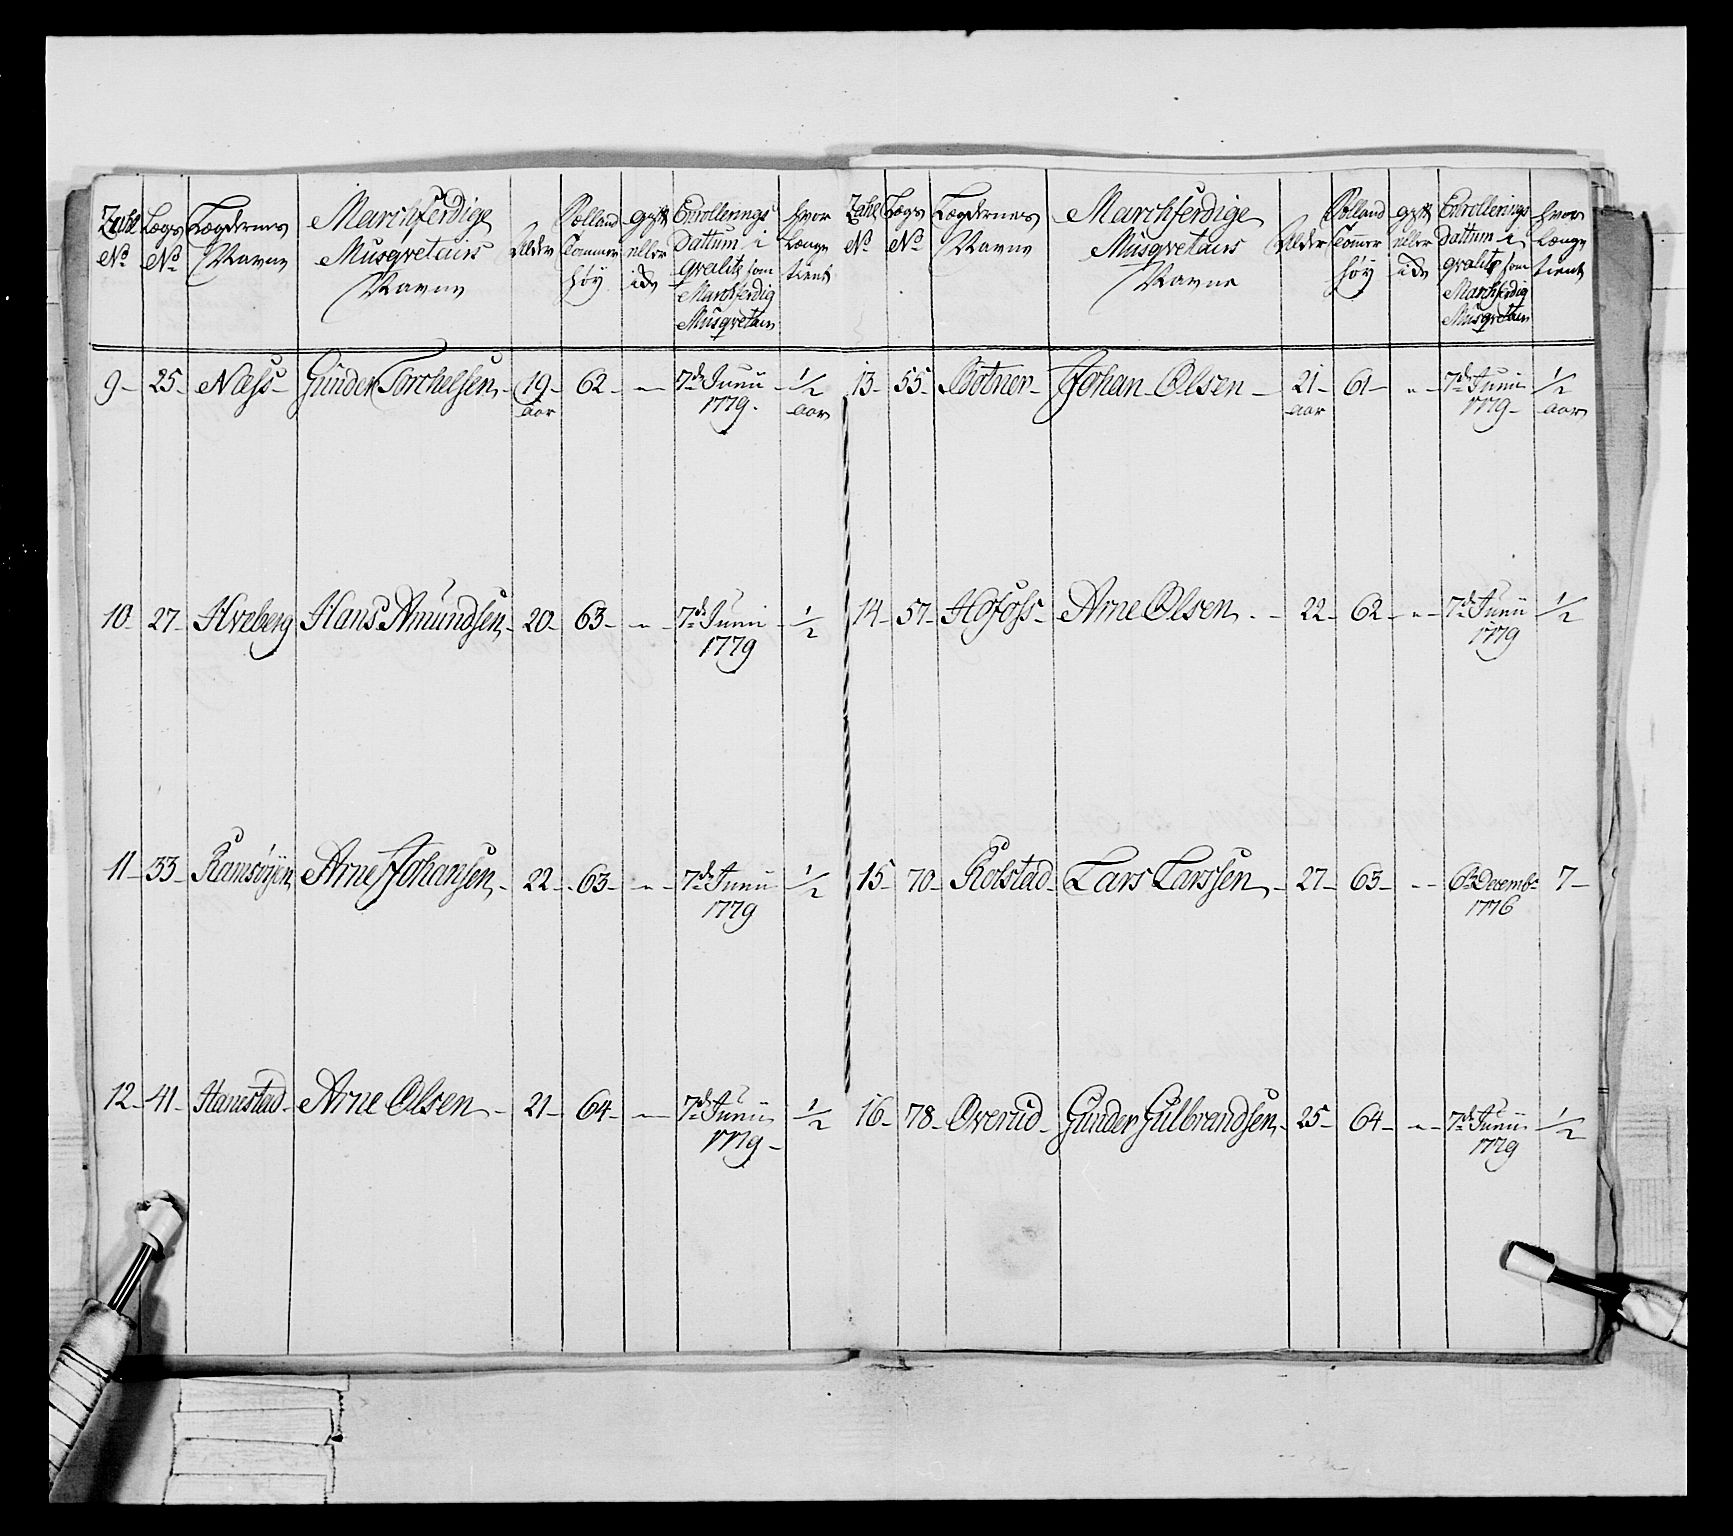 Zahl No Lægs No Lægdernes Navne Marchferdige Musqvetairs Navne Alder Tolland Tommer høy gift eller ide Enrollerings Dattum i qvalite som Marchferdig Musqvetair hvor længe tient
9 - 25 - Næss - Gunder Torchelsen - 19 aar - 62 - " - 7de Junii 1779 - 1/2 aar
10 - 27 - Hveberg Hans Amundsen - 20 - 63 - " - 7de Junii 1779 - 1/2
11 - 33 - Ramsøyen Arne Johansen - 22 - 63 - " - 7de Junii 1779 - 1/2
12 - 41 - Hanestad - Arne Olsen - 21 - 64 - " - 7de Junii 1779 - 1/2
Zahl No Lægs No Lægdernes Navne Marchferdige Musqvetairs Navne Alder Tolland Tommer høy gift eller ide Enrollerings Dattum i qvalite som Marchferdig Musqvetair hvor længe tient
13 - 55 - Botner - Johan Olsen - 21 aar - 61 - " - 7de Junii 1779 - 1/2 aar
14 - 57 - Hofoss - Arne Olsen - 22 - 62 - " - 7de Junii 1779 - 1/2
15 - 70 - Kolstad - Lars Larssen - 27 - 63 - " - 6te Decembr 1776 7 -
16 - 78 - Overud - Gunder Gulbrandsen - 25 - 64 - " - 7de Junii 1779 - 1/2